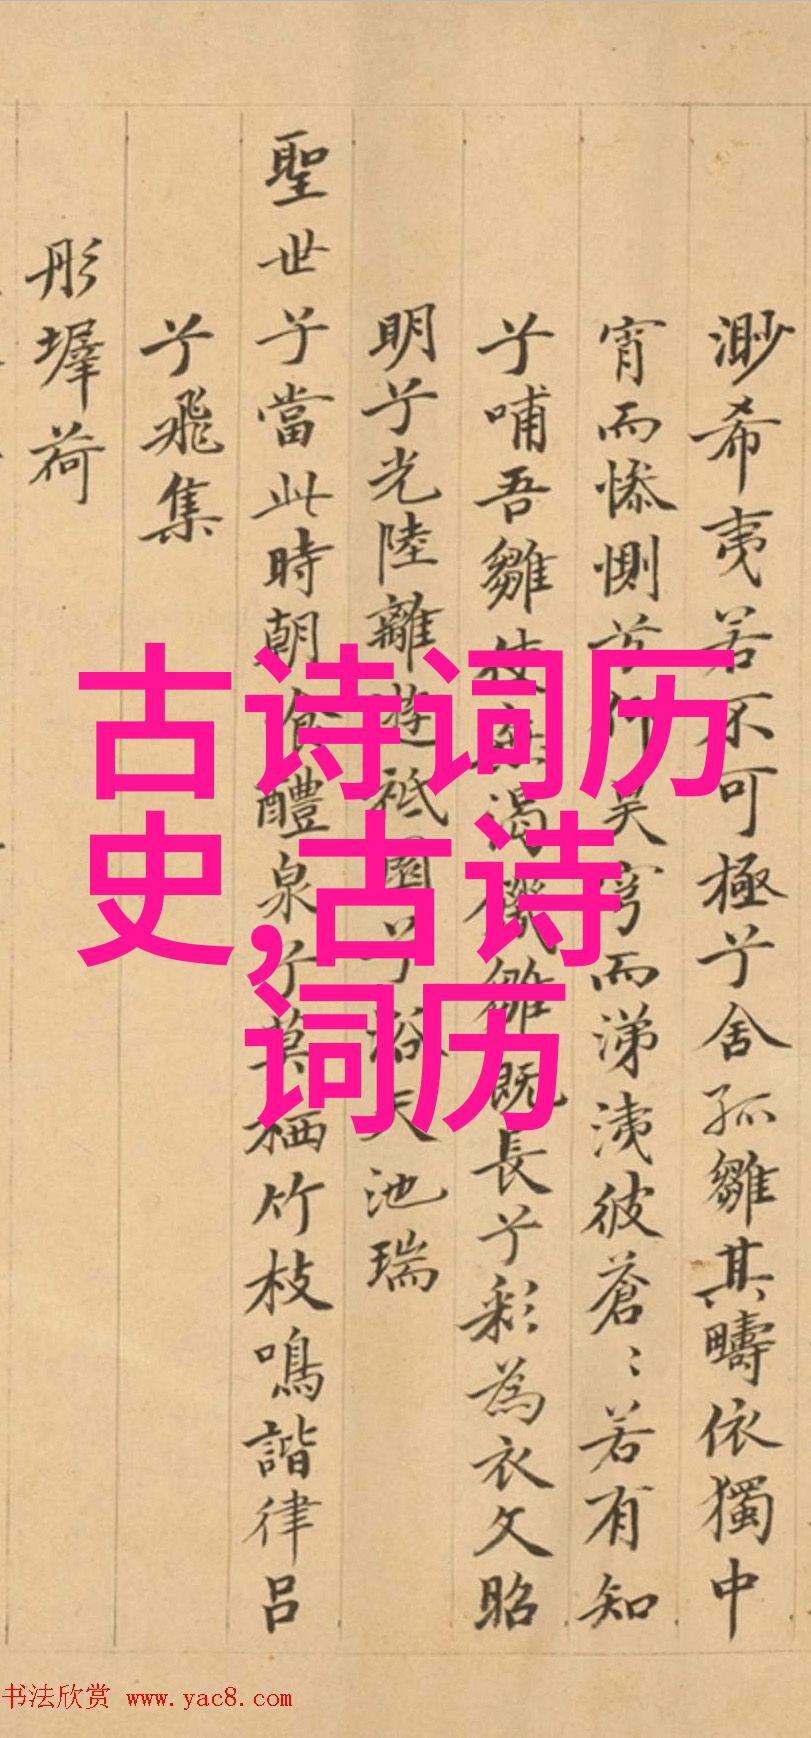 渺希夷若不可極兮舍孤雛其疇依獨中
宵而惨惻兮仰昊穹而涕洟彼蒼〻若有知
兮哺吾雛使無渴饑雛既長兮彩為衣文昭
明兮光陸離遊祇園兮浴天池瑞
聖世兮當此時朝飲醴泉兮莫栖竹枝鳴諧律呂
兮飛集
彤墀荷
古诗词历
史,古诗
词历
书法欣赏 www.yac8.com